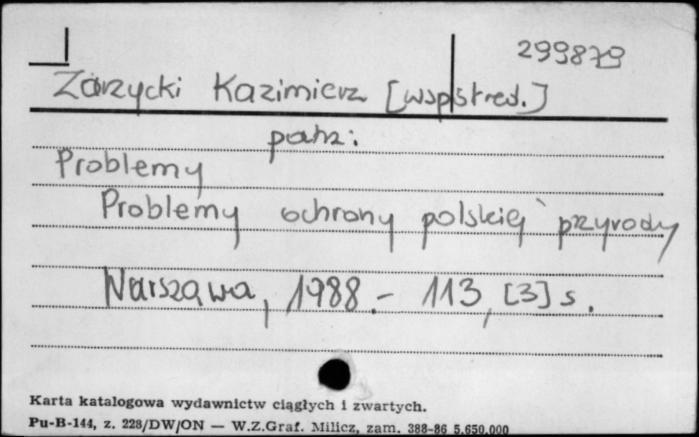 299879
Zarzycki Kazimierz [wspłred.]
patrz:
Problemy
Problemy ochrony polskiej przyrody
Warszawa, 1988.- 113, [3] s.
Karta katalogowa wydawnictw ciągłych i zwartych.
Pu-B-144, z. 228/DW/ON — W.Z.Graf. Milicz, zam. 388-86 5.650.000